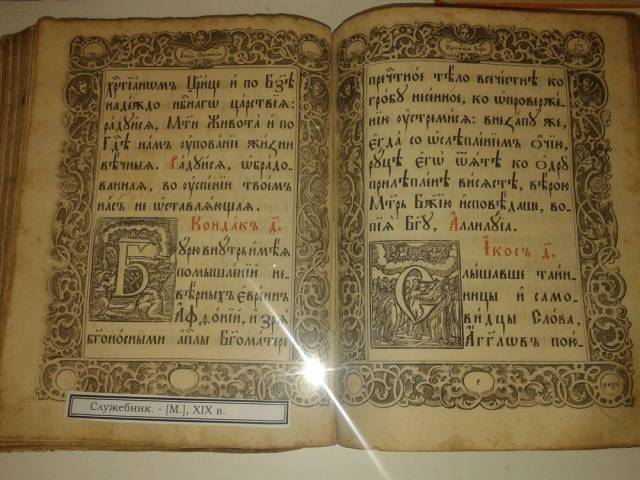 хр҇тїа́нѡмъ Цр҃и́це и҆ по Бз҃ѣ
наде́ждо нб҇нагѡ ца́рствїѧ:
ра́дꙋйсѧ, Мт҃и Живота̀ и҆ по
Гд҇ѣ на́мъ ᲂу҆пова́нїе жи́зни
вѣ́чныѧ. Ра́дꙋйсѧ, ѡ҆бра́до-
ванная, во ᲂу҆спе́нїи твое́мъ
на́съ не ѡ҆ставлѧ́ющаѧ.
Конда́къ д҃.
Бꙋ́рю внꙋ́трь и҆мѣ́ѧ
помышле́нїй не-
вѣ́рныхъ є҆вре́инъ
А҆ѳѳо́нїй, и҆ зрѧ̀
бг҃оно́сными а҆пⷭ҇лы Бг҃ома́тере
пречⷭ҇тное тѣ́ло всече́стнѣ ко
гро́бꙋ несе́нное, ко ѡ҆проверже́-
нїю ᲂу҆стреми́сѧ: внеза́пꙋ же,
є҆гда̀ со ѡ҆слѣпле́нїемъ ѻ҆чі́ю,
рꙋ́цѣ є҆гѡ̀ ѿѧ́тѣ ко ѻ҆дрꙋ̀
прилѣпле́нѣ висѧ́стѣ, вѣ́рою
Мт҃рь Бж҃їю и҆сповѣ́даше, во-
пїѧ̀ Бг҃ꙋ, А҆ллилꙋ́їа.
І҆́косъ д҃.
Слы́шавше та́ин-
ницы и҆ само-
ви́дцы Сло́ва,
А҆́гг҃лѡвъ пою-
Служебник. - [М.], XIX в.